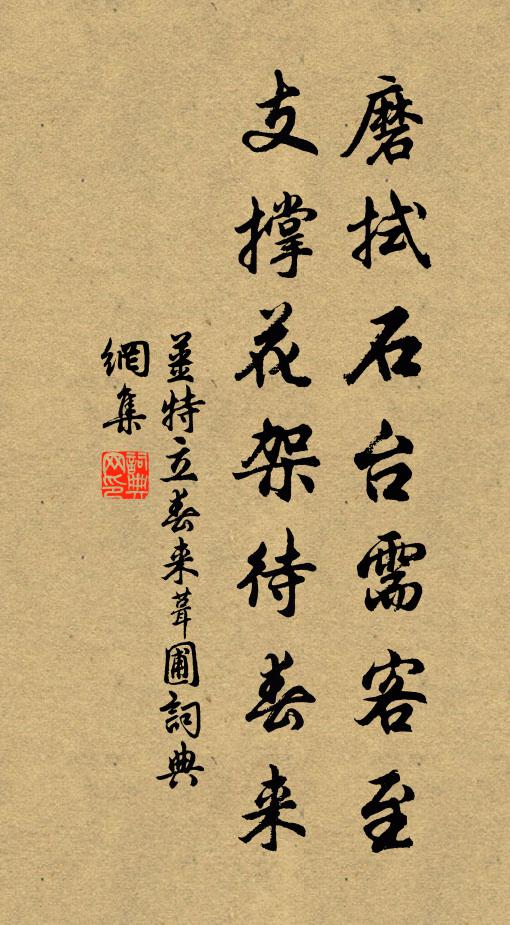 磨拭石台需客至
支撑花架待春来
姜特立春来葺圃詞典
網集
詞典
网印